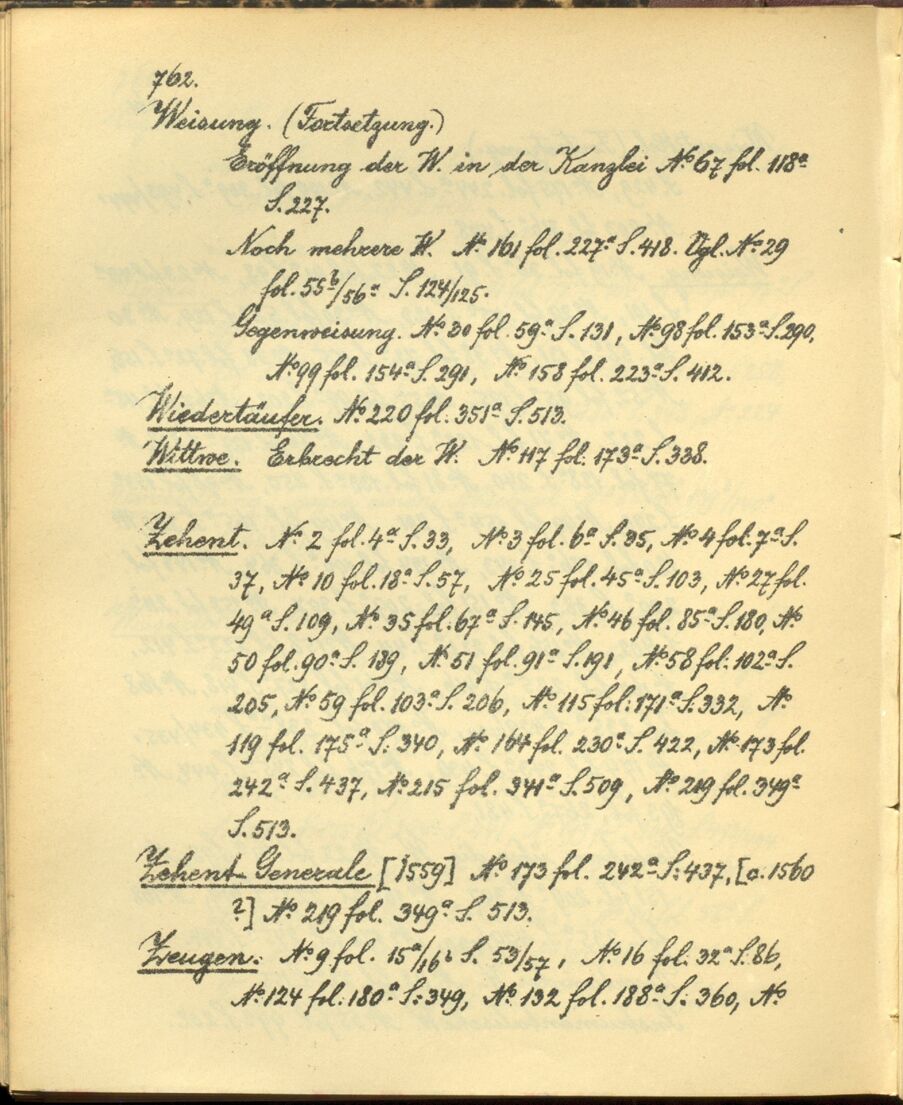 762.
Weisung. (Fortsetzung.)
Eröffnung der W. in der Kanzlei Nº 67 fol. 118ª
S. 227.
Noch mehrere W. Nº 161 fol. 227ª S. 418. Vgl. Nº 29
fol. 55ᵇ/56ª S. 124/125.
Gegenweisung. Nº 30 fol. 59ª S. 131, Nº 98 fol. 153ª S. 290,
Nº 99 fol. 154ª S. 291, Nº 158 fol. 223ª S. 412.
Wiedertäufer. Nº 220 fol. 351ª S. 513.
Wittwe. Erbrecht der W. Nº 117 fol. 173ª S. 338.
Zehent. Nº 2 fol. 4ª S. 33, Nº 3 fol. 6ª S. 35, Nº 4 fol. 7ª S.
37, Nº 10 fol. 18ª S. 57, Nº 25 fol. 45ª S. 103, Nº 27 fol.
49ª S. 109, Nº 35 fol. 67ª S. 145, Nº 46 fol. 85ª S. 180, Nº
50 fol. 90ª S. 189, Nº 51 fol. 91ª S. 191, Nº 58 fol. 102ª S.
205, Nº 59 fol. 103ª S. 206, Nº 115 fol. 171ª S. 332, Nº
119 fol. 175ª S. 340, Nº 164 fol. 230ª S. 422, Nº 173 fol.
242ª S. 437, Nº 215 fol. 341ª S. 509, Nº 219 fol. 349ª
S. 513.
Zehent-Generale [1559] Nº 173 fol. 242ª S. 437, [a. 1560
?] Nº 219 fol. 349ª S. 513.
Zeugen. Nº 9 fol. 15ª/16ᵇ S. 53/57, Nº 16 fol. 32ª S. 86,
Nº 124 fol. 180ª S. 349, Nº 132 fol. 188ª S. 360, Nº